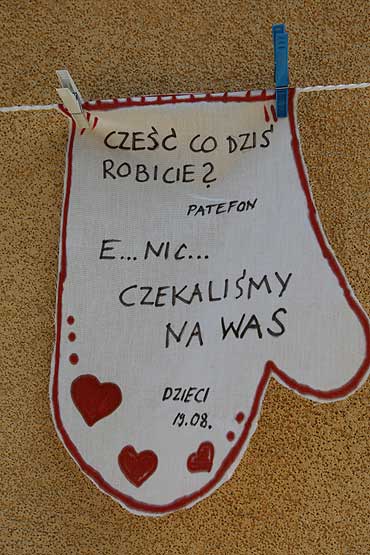 CZEŚĆ CO DZIŚ
ROBICIE?
PATEFON
E... NIC...
CZEKALIŚMY
NA WAS
DZIECI
19.08.